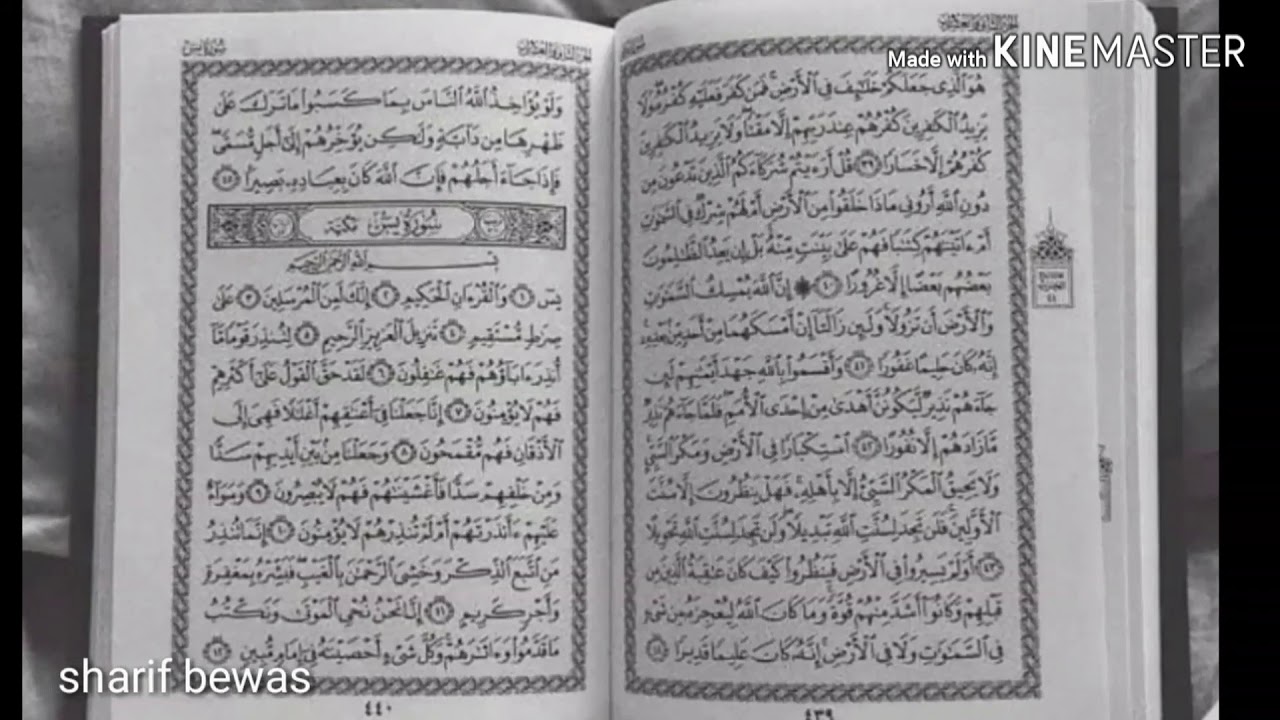 Made with KINEMASTER
الجزء الثاني والعشرون
هُوَ ٱلَّذِى جَعَلَكُمْ خَلَٰٓئِفَ فِى ٱلْأَرْضِ فَمَن كَفَرَ فَعَلَيْهِ كُفْرُهُۥ وَلَا
يَزِيدُ ٱلْكَٰفِرِينَ كُفْرُهُمْ عِندَ رَبِّهِمْ إِلَّا مَقْتًا وَلَا يَزِيدُ ٱلْكَٰفِرِينَ
كُفْرُهُمْ إِلَّا خَسَارًا ٣٩ قُلْ أَرَءَيْتُمْ شُرَكَآءَكُمُ ٱلَّذِينَ تَدْعُونَ مِن
دُونِ ٱللَّهِ أَرُونِى مَاذَا خَلَقُوا۟ مِنَ ٱلْأَرْضِ أَمْ لَهُمْ شِرْكٌ فِى ٱلسَّمَٰوَٰتِ
أَمْ ءَاتَيْنَٰهُمْ كِتَٰبًا فَهُمْ عَلَىٰ بَيِّنَتٍ مِّنْهُ بَلْ إِن يَعِدُ ٱلظَّٰلِمُونَ
بَعْضُهُم بَعْضًا إِلَّا غُرُورًا ٤٠ ۞ إِنَّ ٱللَّهَ يُمْسِكُ ٱلسَّمَٰوَٰتِ
وَٱلْأَرْضَ أَن تَزُولَا وَلَئِن زَالَتَآ إِنْ أَمْسَكَهُمَا مِنْ أَحَدٍ مِّنۢ بَعْدِهِۦٓ
إِنَّهُۥ كَانَ حَلِيمًا غَفُورًا ٤١ وَأَقْسَمُوا۟ بِٱللَّهِ جَهْدَ أَيْمَٰنِهِمْ لَئِن
جَآءَهُمْ نَذِيرٌ لَّيَكُونُنَّ أَهْدَىٰ مِنْ إِحْدَى ٱلْأُمَمِ فَلَمَّا جَآءَهُمْ نَذِيرٌ
مَّا زَادَهُمْ إِلَّا نُفُورًا ٤٢ ٱسْتِكْبَارًا فِى ٱلْأَرْضِ وَمَكْرَ ٱلسَّيِّئِ
وَلَا يَحِيقُ ٱلْمَكْرُ ٱلسَّيِّئُ إِلَّا بِأَهْلِهِۦ فَهَلْ يَنظُرُونَ إِلَّا سُنَّتَ
ٱلْأَوَّلِينَ فَلَن تَجِدَ لِسُنَّتِ ٱللَّهِ تَبْدِيلًا وَلَن تَجِدَ لِسُنَّتِ ٱللَّهِ تَحْوِيلًا
٤٣ أَوَلَمْ يَسِيرُوا۟ فِى ٱلْأَرْضِ فَيَنظُرُوا۟ كَيْفَ كَانَ عَٰقِبَةُ ٱلَّذِينَ مِن
قَبْلِهِمْ وَكَانُوٓا۟ أَشَدَّ مِنْهُمْ قُوَّةً وَمَا كَانَ ٱللَّهُ لِيُعْجِزَهُۥ مِن شَىْءٍ
فِى ٱلسَّمَٰوَٰتِ وَلَا فِى ٱلْأَرْضِ إِنَّهُۥ كَانَ عَلِيمًا قَدِيرًا ٤٤
٤٣٩
الجزء الثاني والعشرون
سورة يس
وَلَوْ يُؤَاخِذُ ٱللَّهُ ٱلنَّاسَ بِمَا كَسَبُوا۟ مَا تَرَكَ عَلَىٰ
ظَهْرِهَا مِن دَآبَّةٍ وَلَٰكِن يُؤَخِّرُهُمْ إِلَىٰٓ أَجَلٍ مُّسَمًّى
فَإِذَا جَآءَ أَجَلُهُمْ فَإِنَّ ٱللَّهَ كَانَ بِعِبَادِهِۦ بَصِيرًا ٤٥
سُورَةُ يسٓ مكية
بِسْمِ ٱللَّهِ ٱلرَّحْمَٰنِ ٱلرَّحِيمِ
يسٓ ١ وَٱلْقُرْءَانِ ٱلْحَكِيمِ ٢ إِنَّكَ لَمِنَ ٱلْمُرْسَلِينَ ٣ عَلَىٰ
صِرَٰطٍ مُّسْتَقِيمٍ ٤ تَنزِيلَ ٱلْعَزِيزِ ٱلرَّحِيمِ ٥ لِتُنذِرَ قَوْمًا مَّآ
أُنذِرَ ءَابَآؤُهُمْ فَهُمْ غَٰفِلُونَ ٦ لَقَدْ حَقَّ ٱلْقَوْلُ عَلَىٰٓ أَكْثَرِهِمْ
فَهُمْ لَا يُؤْمِنُونَ ٧ إِنَّا جَعَلْنَا فِىٓ أَعْنَٰقِهِمْ أَغْلَٰلًا فَهِىَ إِلَى
ٱلْأَذْقَانِ فَهُم مُّقْمَحُونَ ٨ وَجَعَلْنَا مِنۢ بَيْنِ أَيْدِيهِمْ سَدًّا
وَمِنْ خَلْفِهِمْ سَدًّا فَأَغْشَيْنَٰهُمْ فَهُمْ لَا يُبْصِرُونَ ٩ وَسَوَآءٌ
عَلَيْهِمْ ءَأَنذَرْتَهُمْ أَمْ لَمْ تُنذِرْهُمْ لَا يُؤْمِنُونَ ١٠ إِنَّمَا تُنذِرُ
مَنِ ٱتَّبَعَ ٱلذِّكْرَ وَخَشِىَ ٱلرَّحْمَٰنَ بِٱلْغَيْبِ فَبَشِّرْهُ بِمَغْفِرَةٍ
وَأَجْرٍ كَرِيمٍ ١١ إِنَّا نَحْنُ نُحْىِ ٱلْمَوْتَىٰ وَنَكْتُبُ
مَا قَدَّمُوا۟ وَءَاثَٰرَهُمْ وَكُلَّ شَىْءٍ أَحْصَيْنَٰهُ فِىٓ إِمَامٍ مُّبِينٍ ١٢
٤٤٠
sharif bewas